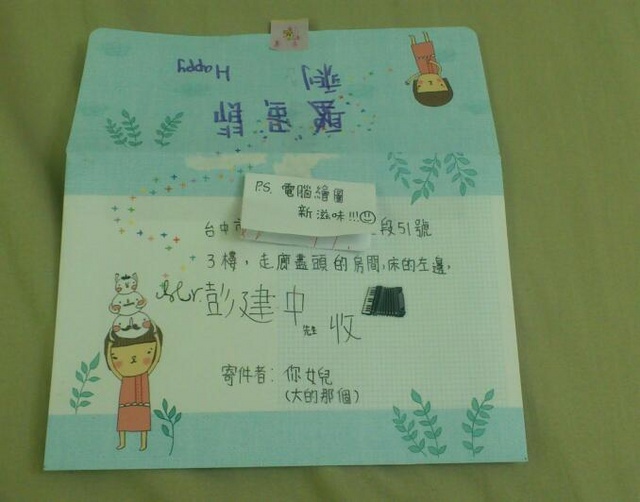 Happy
P.S. 電腦繪圖
新滋味!!!
台中 段51號
3樓,走廊盡頭的房間,床的左邊,
Mr.彭建中 先生 收
寄件者: 你女兒
(大的那個)